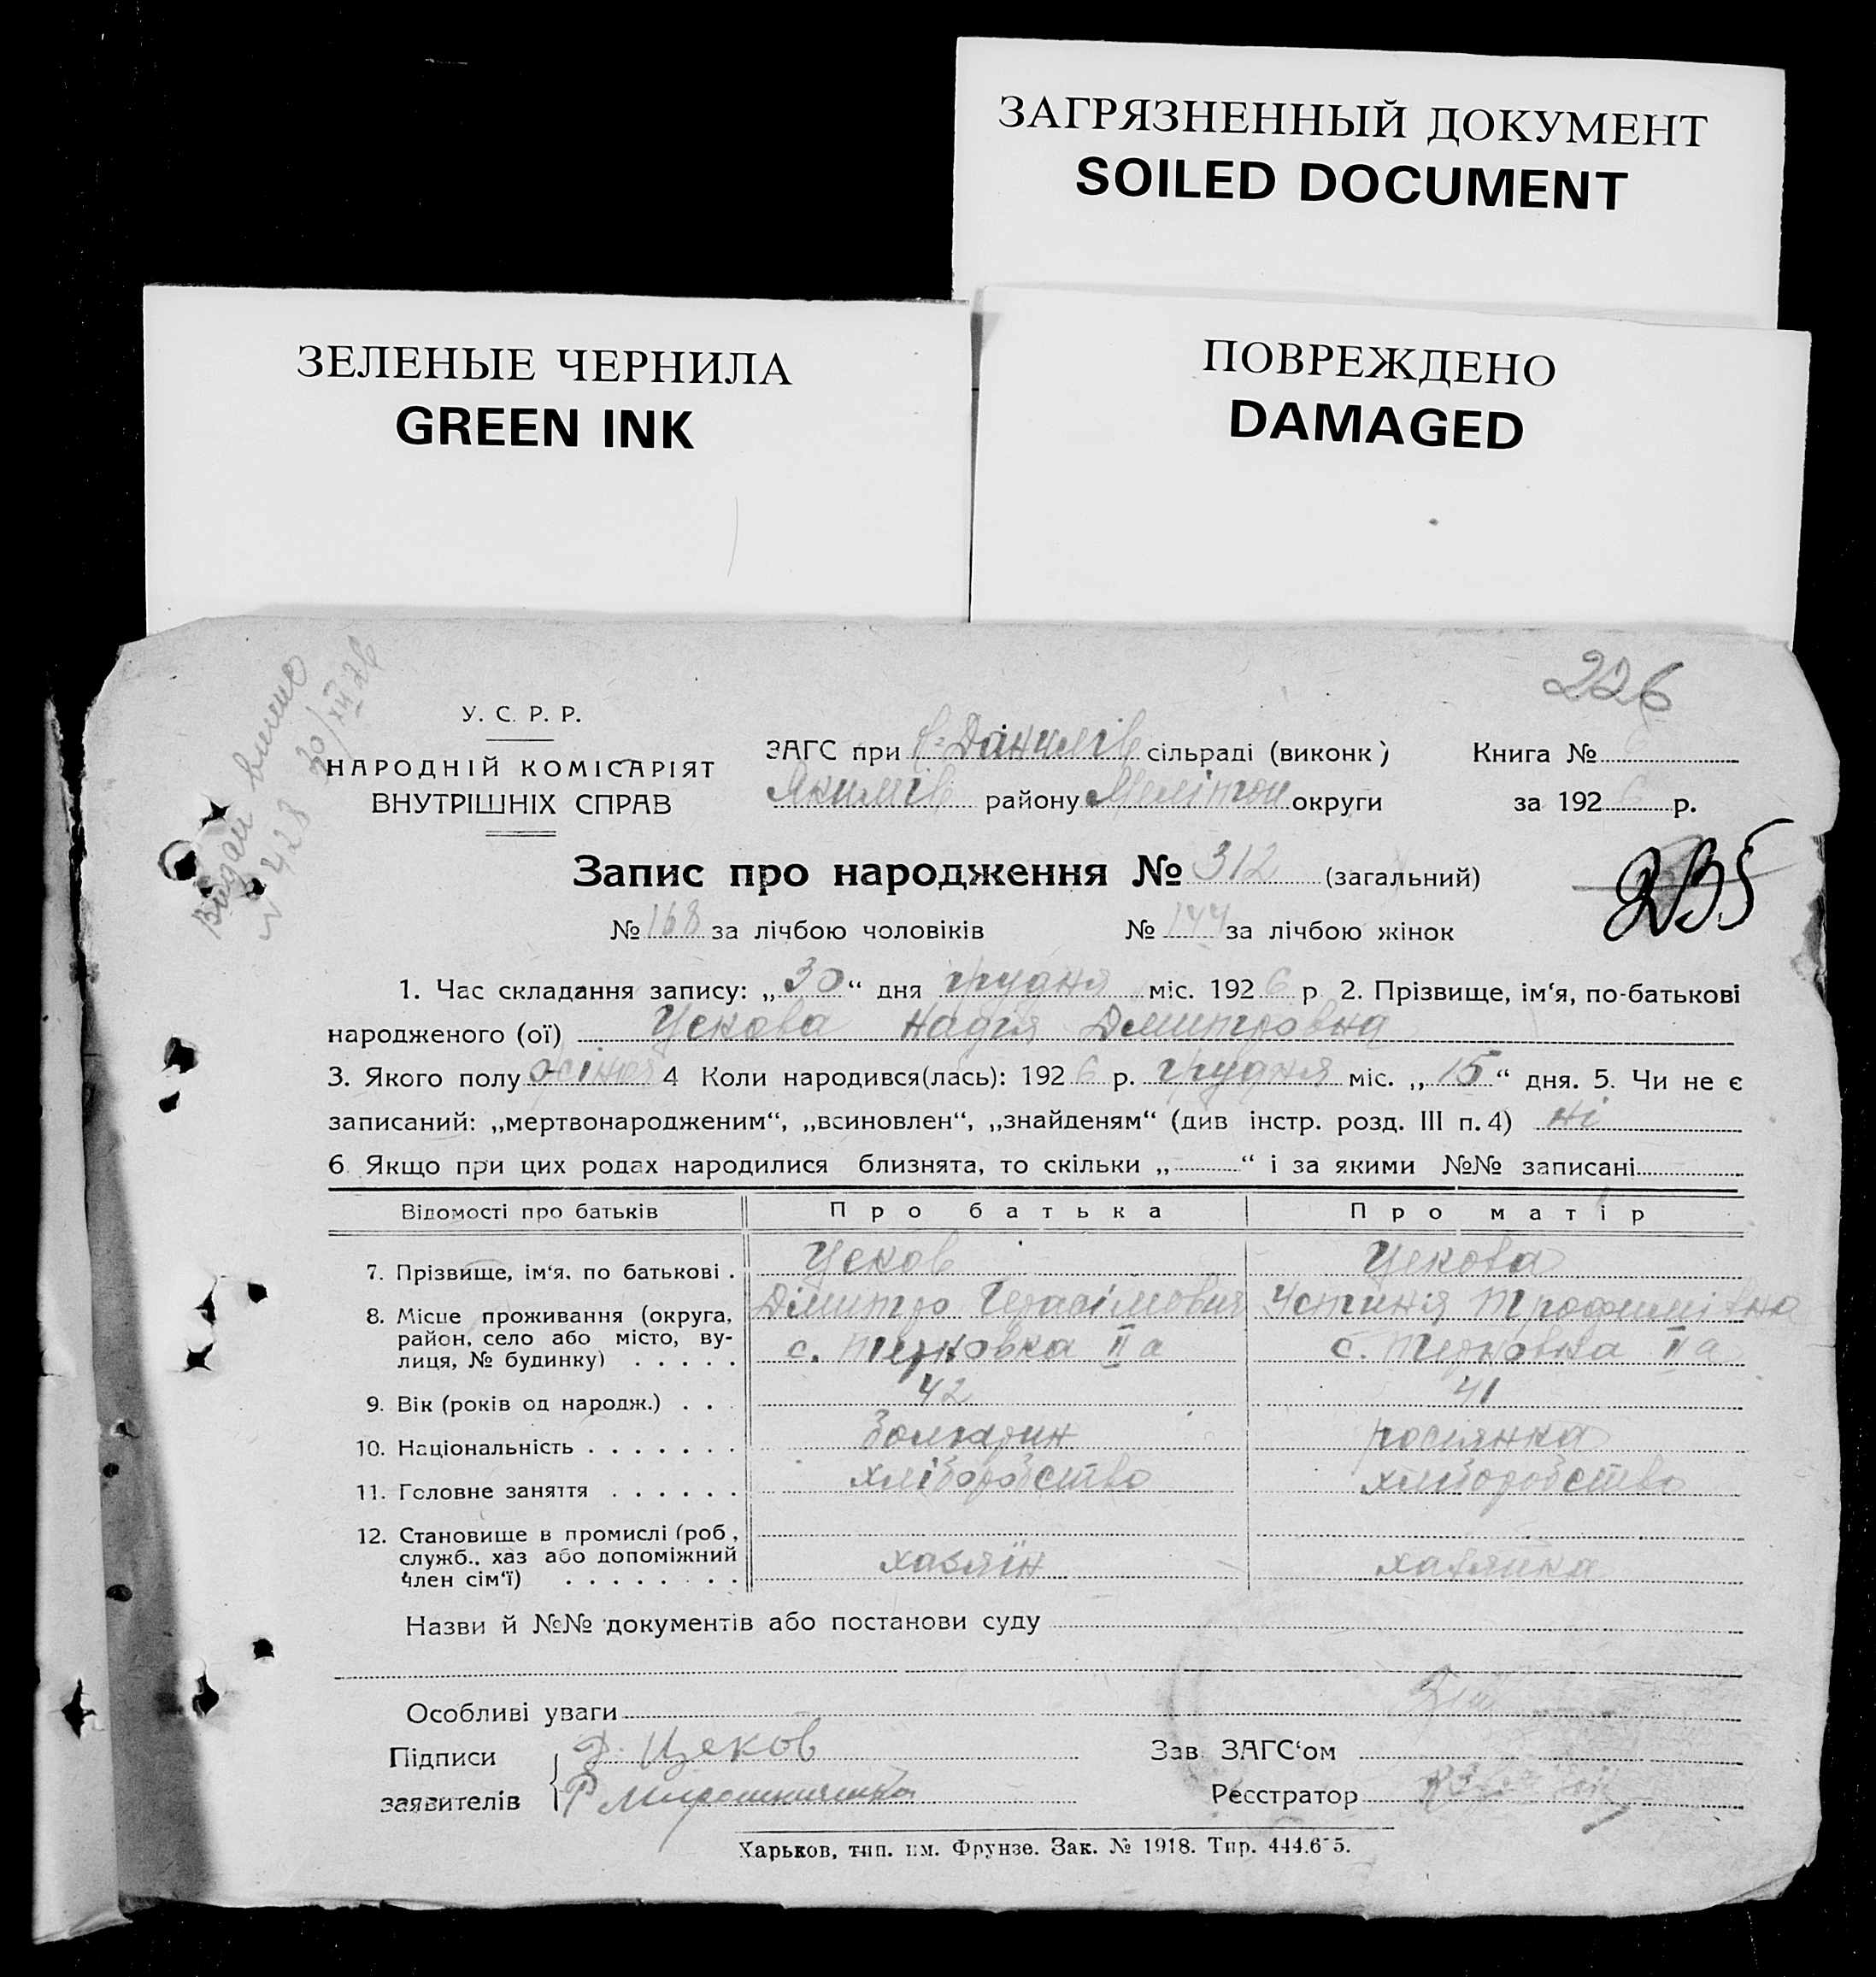 ЗАГРЯЗНЕННЫЙ ДОКУМЕНТ
SOILED DOCUMENT
ЗЕЛЕНЫЕ ЧЕРНИЛА
GREEN INK
ПОВРЕЖДЕНО
DAMAGED
226
Видан
№ 428 30/XII 26
У. С. Р. Р.
НАРОДНІЙ КОМІСАРІЯТ
ВНУТРІШНІХ СПРАВ
ЗАГС при Данилів сільраді (виконк)
Якимів району Мелітоп округи
Книга № 6
за 1926 р.
Запис про народження № 312 (загальний)
235
№ 168 за лічбою чоловіків № 144 за лічбою жінок
1. Час складання запису: „30“ дня грудня міс. 1926 р 2. Прізвище, ім‘я, по-батькові
народженого (ої) Цекова Надія Дмитровна
3. Якого полу жіноч 4 Коли народився(лась): 1926 р. грудня міс. „15“ дня. 5. Чи не є
записаний: „мертвонародженим“, „всиновлен“, „знайденям“ (див інстр. розд. III п. 4) ні
6. Якщо при цих родах народилися близнята, то скільки „ “ і за якими №№ записані
Відомості про батьків Про батька Про матір
7. Прізвище, ім‘я. по батькові . Цеков Цекова
Дімитро Герасімович Устинія Трофимівна
8. Місце проживання (округа, район, село або місто, ву-
лиця, № будинку) . . . . . с. Терновка II а с. Терновка II а
9. Вік (років од народж.) . . . 42 41
10. Національність . . . . . . . болгарин росіянка
11. Головне заняття . . . . . . хліборобство хліборобство
12. Становище в промислі (роб,
служб., хаз або допоміжний
член сім‘ї) . . . . . . . . хазяїн хазяйка
Назви й №№ документів або постанови суду
Особливі уваги
Підписи Д. Цеков Зав. ЗАГС‘ом
заявителів Р Мирошниченко Реєстратор
Харьков, тип. им. Фрунзе. Зак. № 1918. Тир. 444.6-5.